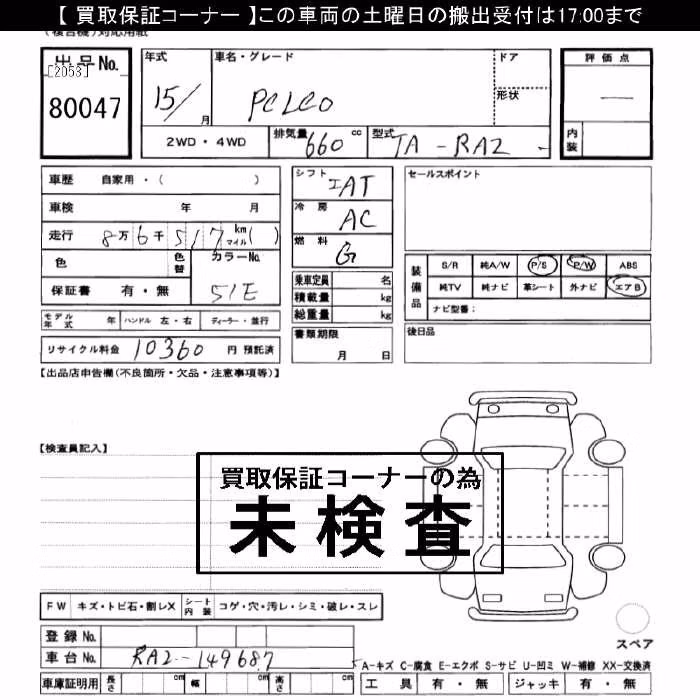 【 買取保証コーナー 】この車両の土曜日の搬出受付は17:00まで
(複合機)対応用紙
出品No.
[2053]
80047
年式
15/
月
車名・グレード
PLEO
ドア
形状
評価点
—
内装
2WD・4WD
排気量 660 cc
型式 TA-RA2
車歴 自家用・( )
車検 年 月
走行 8万6千517 km マイル( )
色
色替
カラーNo.
51E
保証書 有・無
シフト IAT
冷房 AC
燃料 G
乗車定員 名
積載量 kg
総重量 kg
書類期限
月 日
セールスポイント
装備品
S/R 純A/W P/S P/W ABS
純TV 純ナビ 革シート 外ナビ エアB
ナビ型番：
後日品
モデル年式 年 ハンドル 左・右 ディーラー・並行
リサイクル料金 10360 円 預託済
【出品店申告欄(不良箇所・欠品・注意事項等)】
【検査員記入】
買取保証コーナーの為
未検査
FW キズ・トビ石・割レX シート内装 コゲ・穴・汚レ・シミ・破レ・スレ
スペア
登録No.
車台No. RA2-149687
A-キズ C-腐食 E-エクボ S-サビ U-凹ミ W-補修 XX-交換済
車庫証明用 長さ cm 幅 cm 高さ cm
工具 有・無 ジャッキ 有・無